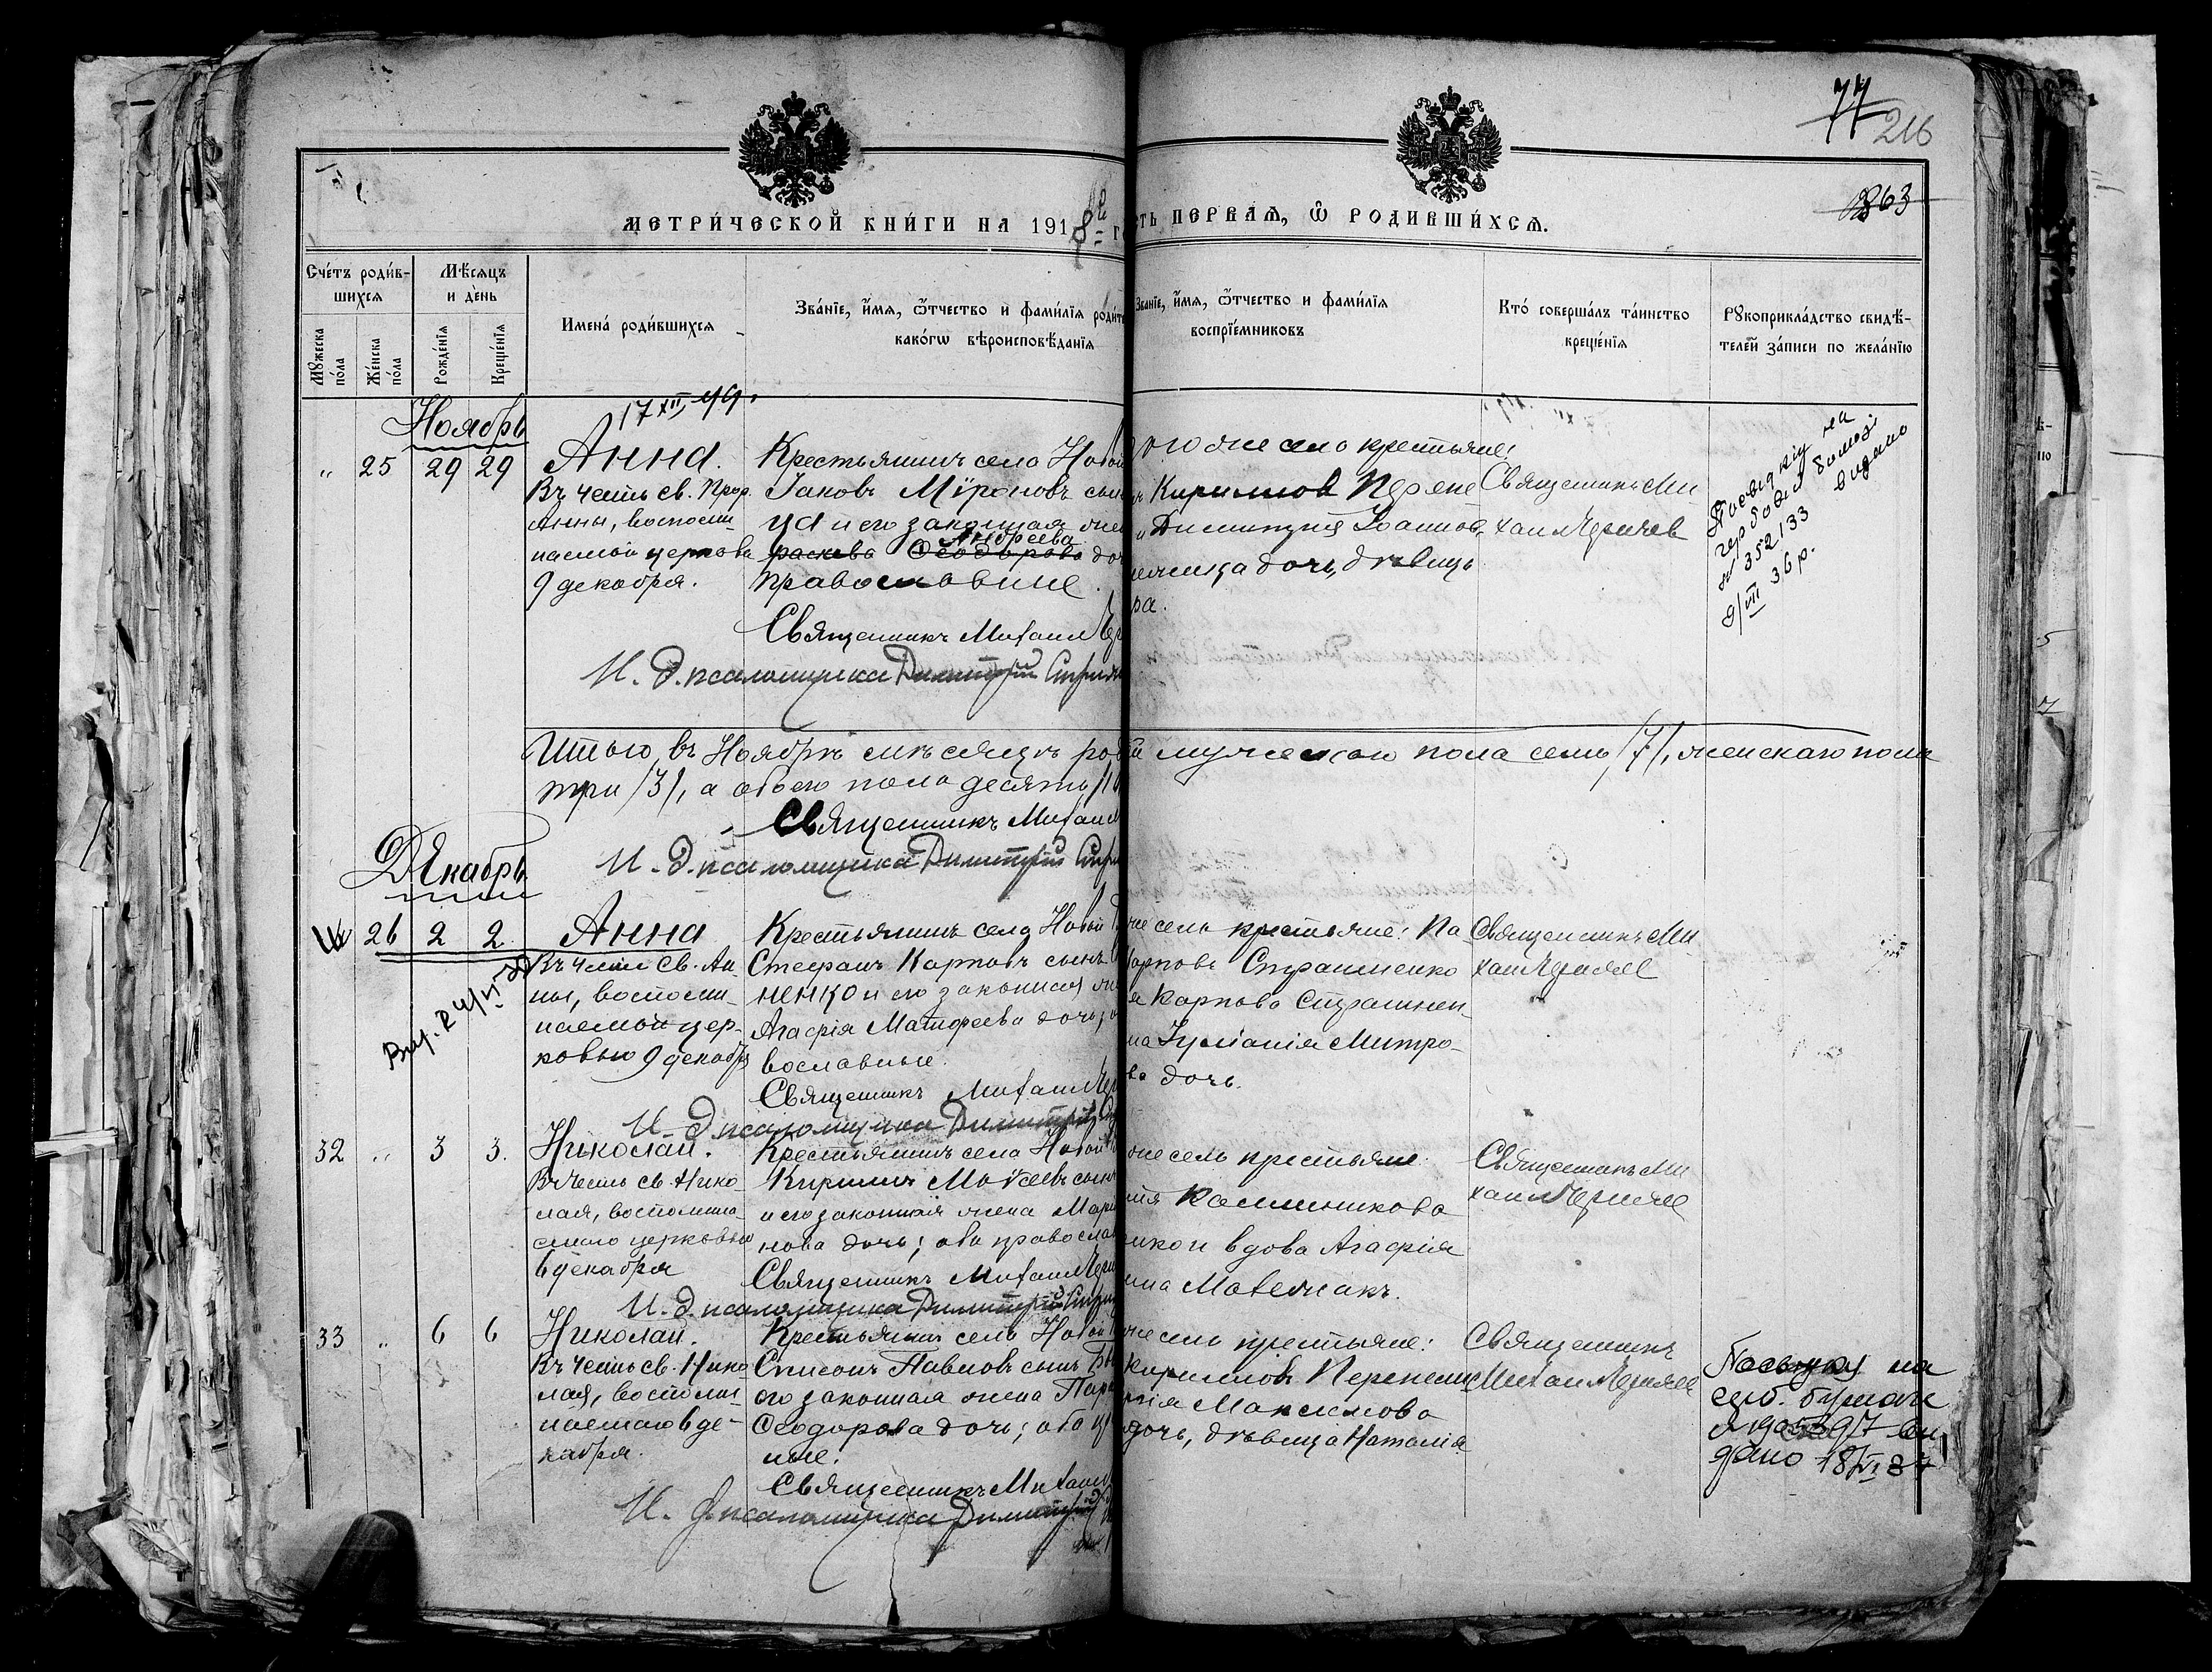 77
216
863
МЕТРИЧЕСКОЙ КНИГИ НА 1918 го
сть ПЕРВАЯ, Ѿ РОДИВШИХСЯ.
Счетъ родив-
шихся
Мѣсяцъ
и день
Мужеска
пола
Женска
пола
Рожденія
Крещенія
Имена родившихся
Званіе, имя, ѿтчество и фамилія родит
какогѡ вѣроисповѣданія
Званіе, имя, ѿтчество и фамилія
воспріемниковъ
Кто совершалъ таинство
крещенія
Рукоприкладство свидѣ-
телей записи по желанію
Ноябрь
17 XII
" 25 29 29
Анна.
Въ честь св. Прор.
Анны, воспоми-
наемой церковью
9 декабря.
Крестьянинъ села Новой
Іаковъ Мѵроновъ сын
ца и его законная жен
Андреева
раскева Ѳеодорова доч
православные.
Священникъ Михаилъ Чер
И. д. псаломщика Димитрій
ого же села крестьяне:
Кириллов Переп
и Димитрія Іоаннов.
дочь, дѣвица
ра.
Священникъ Ми
хаилъ Черняев
на
гербовій бумазі
№ 352133 видано
9/VII 36 р.
Итого въ Ноябрѣ мѣсяцѣ род
мужескаго пола семь /7/, женскаго пола
три /3/, а обоего пола десять /10
Священникъ Михаил
И. д. псаломщика Димитрій
Декабрь
26 2 2
Анна
Въ честь Св. Ан-
ны, воспоми-
наемой цер-
ковью 9 декабря
Крестьянинъ села Новой
Стефанъ Карповъ сынъ
ненко и его законная ж
Агафія Матфеева дочь; о
вославные.
Священникъ Михаилъ Чер
И. д. псаломщика Димитрій
же села крестьяне: Па
Карповъ Страшненко
я Карпова Страшнен-
на Іуліанія Митро-
ва дочь.
Священникъ Ми
хаилъ Черняев
32 " 3 3.
Николай.
Въ честь св. Нико-
лая, воспомина-
емаго церковью
6 декабря
Крестьянинъ села Новой
Кириллъ Моѵсеевъ сынъ
и его законная жена Мари
нова дочь; оба правосла
Священникъ Михаилъ Черн
И. д. псаломщика Димитрій
же села крестьяне:
ия Калинникова
нко и вдова Агафія
на Матвѣнакъ.
Священникъ Ми
хаилъ Черняев
33 " 6 6
Николай.
Въ честь св. Нико
лая, воспоми-
наемаго 6 де-
кабря.
Крестьянинъ села Новой
Симеонъ Павловъ сынъ
его законная жена Пара
Ѳеодорова дочь; оба пр
ные.
Священникъ Михаил
И. д. псаломщика Димитрій
же села крестьяне:
Кириллов Перепели
рія Максимова
дочь, дѣвица Наталія
Священникъ
Михаил Черняев
на
герб. бумаге
вы
дано 18/VI 37